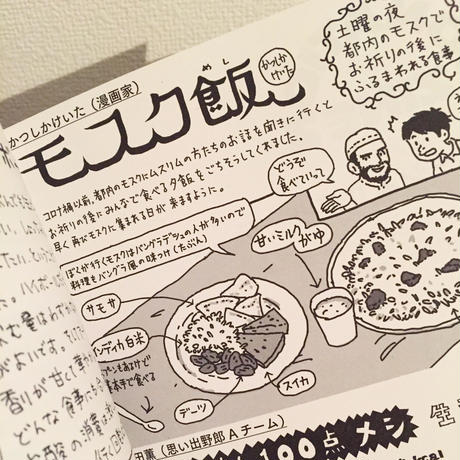 かつしかけいた（漫画家）
モスク飯
めし
かつしか
けいた
土曜の夜
都内のモスクで
お祈りの後に
ふるまわれる食事
コロナ禍以前、都内のモスクにムスリムの方たちのお話を聞きに行くと
お祈りの後にみんなで食べる夕飯をごちそうしてくれました。
早く再びモスクに集まれる日が来ますように。
どうぞ
食べていって
ぼくが行くモスクはバングラデシュの人が多いので
料理もバングラ風の味つけ（たぶん）
甘いミルクがゆ
サモサ
インディカ白米
スプーンもあるけど
基本手で食べる
デーツ
スイカ
田薫（思い出野郎Aチーム）
100点メシ
香りが甘くて
どんな食事に
の消費は